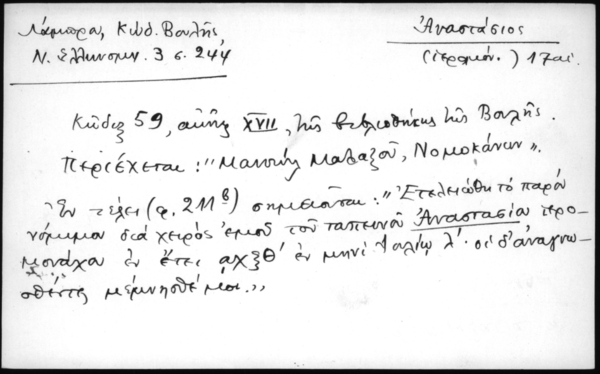 Λάμπρα, Κώδ. Βουλῆς
Ν. Ἑλληνομν. 3 σ. 244
Ἀναστάσιος
(ἱερομόν.) 17 αἰ.
Κῶδιξ 59, αἰῶν. XVII, τῆς βιβλιοθήκης τῆς Βουλῆς.
Περιέχεται: "Μανουὴλ Μαλαξοῦ, Νομοκάνων".
Ἐν τέλει (φ. 211β) σημειοῦται: "Ἐτελειώθη τὸ παρὸν
νόμιμον διὰ χειρὸς ἐμοῦ τοῦ ταπεινοῦ Ἀναστασίου ἱερο-
μονάχου ἐν ἔτει ͵αχξθ' ἐν μηνὶ Ἰουλίῳ λ'. οἱ δ' ἀναγνω-
σθέντες μέμνησθέ μοι."